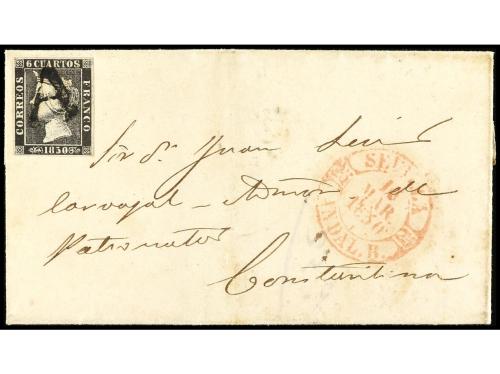 6 CUARTOS
CORREOS
FRANCO
1850
Sor Dn Juan
Carvajal - Admor de
Patronatos
Constantina
SEVILLA
MAR
1850
ANDAL. B.